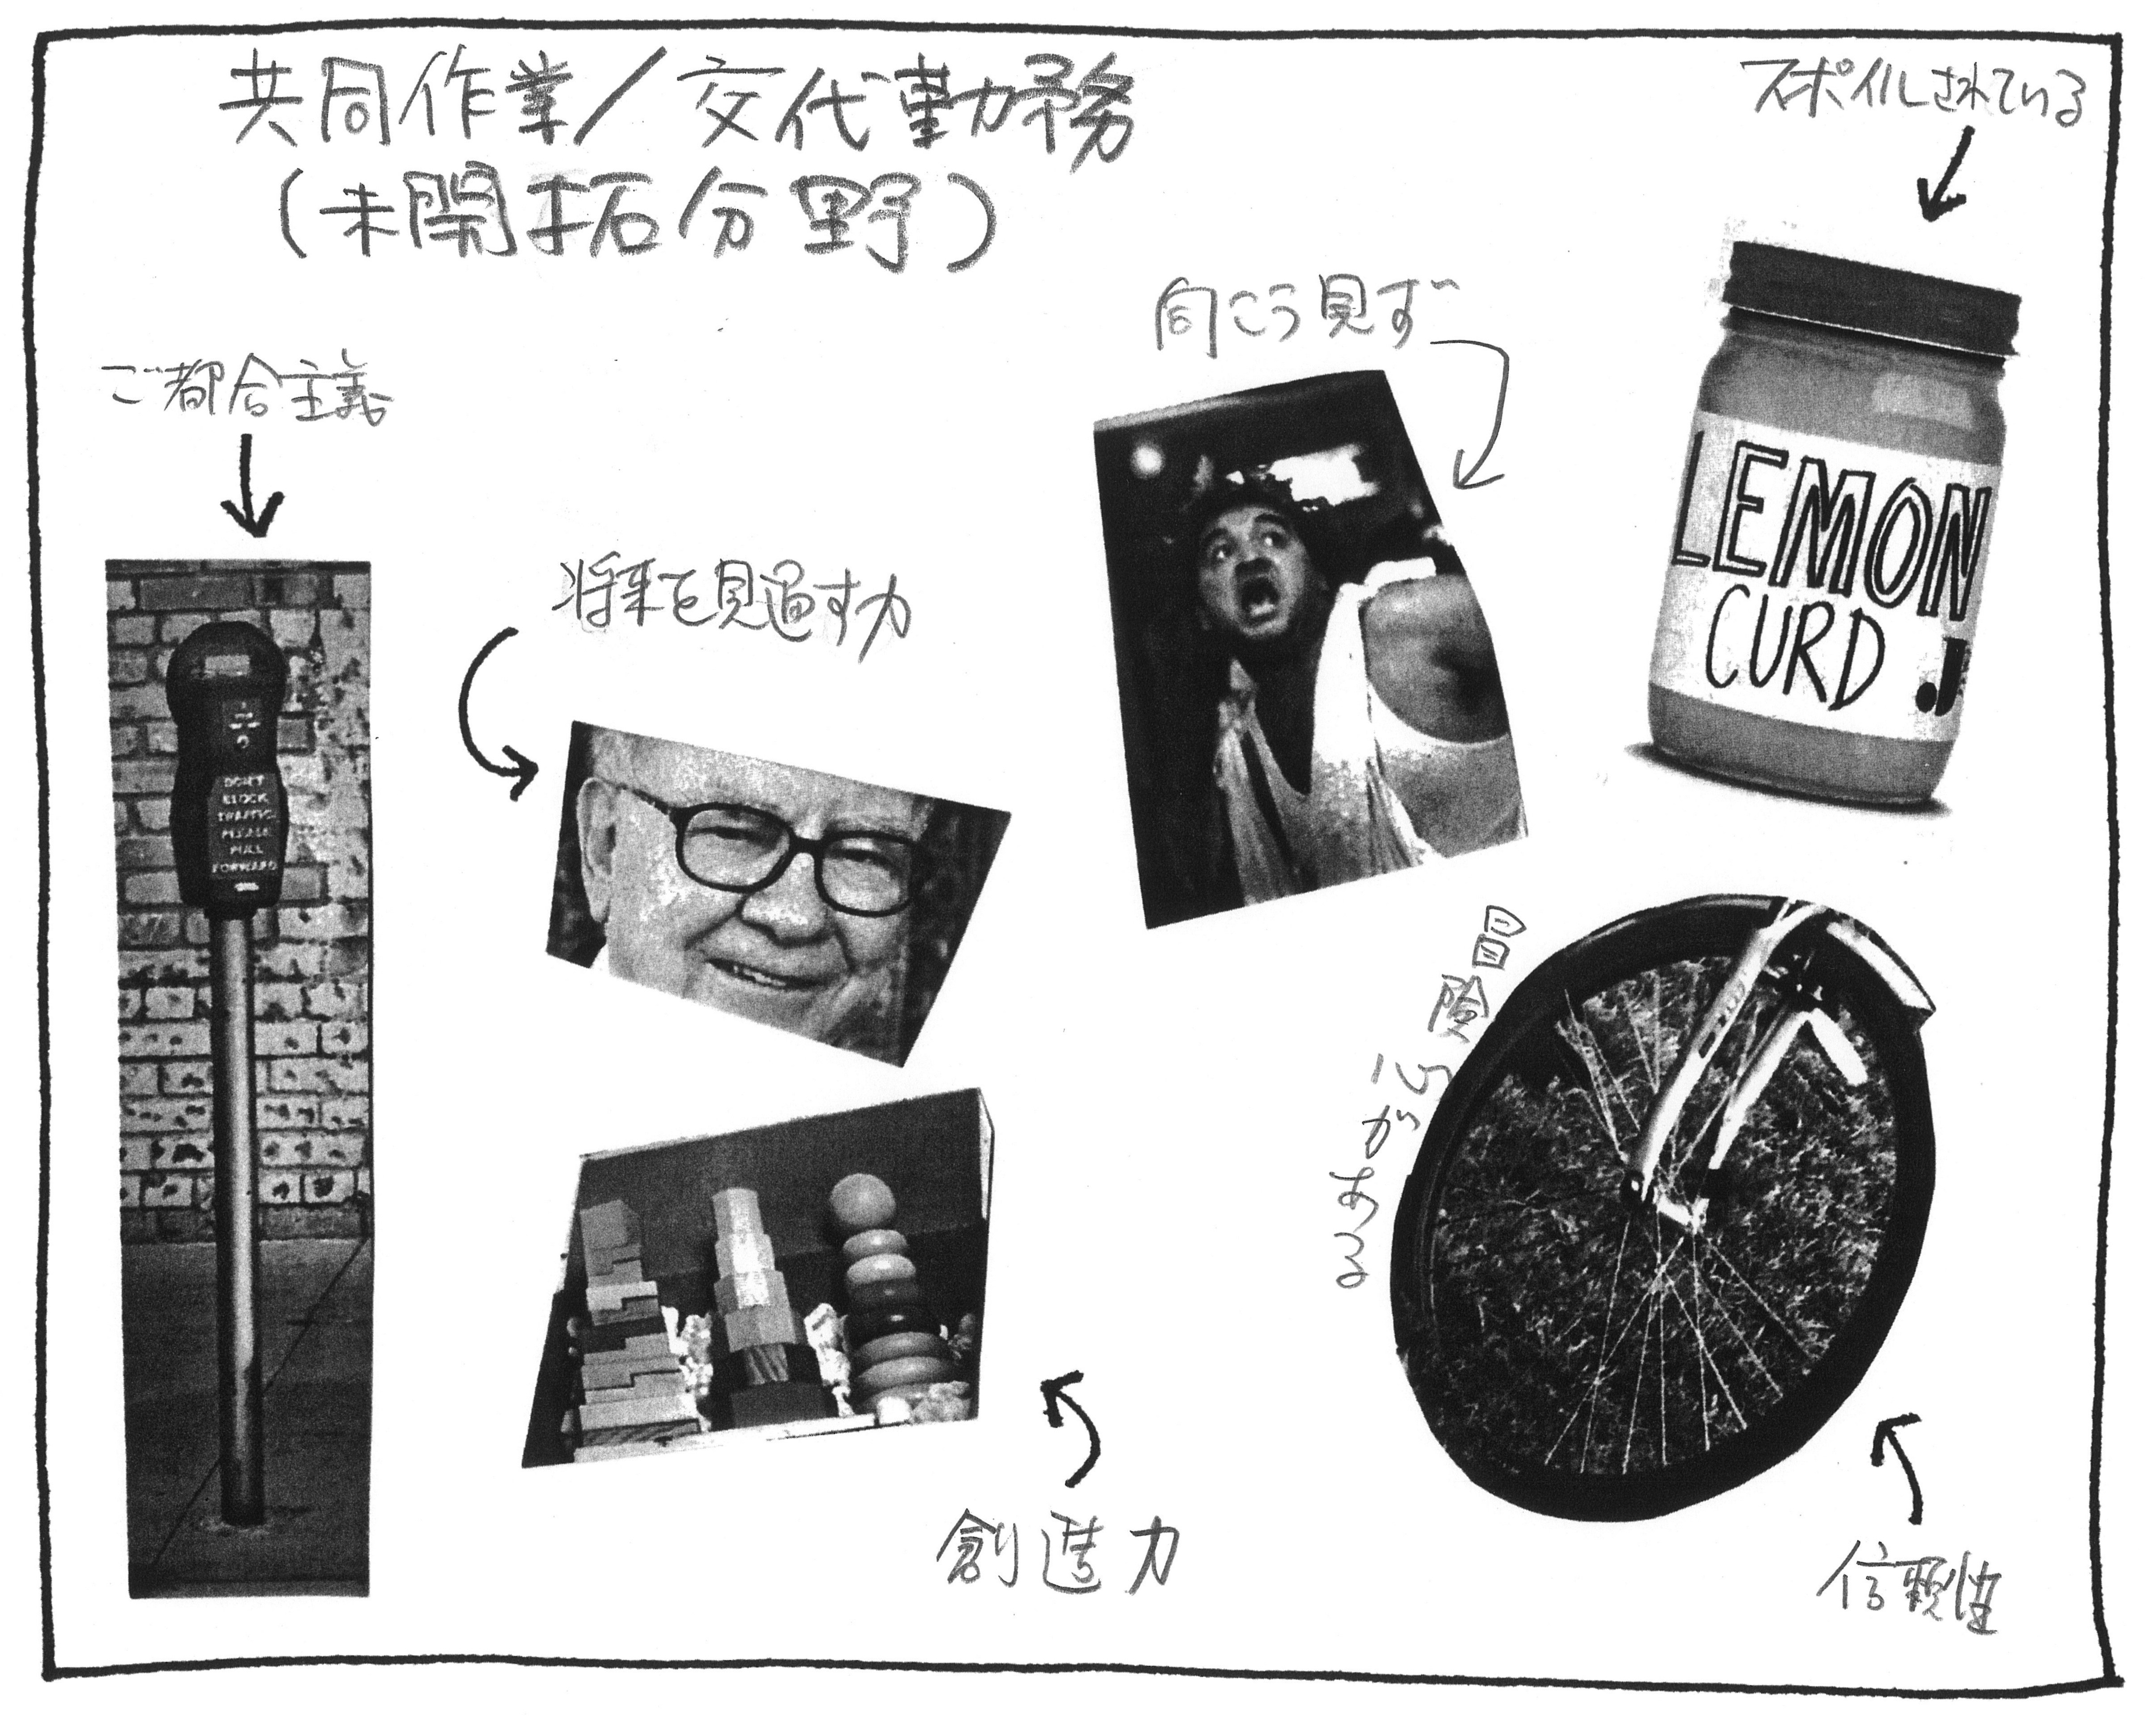 共同作業/交代勤務
(未開拓分野)
スポイルされている
向こう見ず
ご都合主義
将来を見過す力
LEMON
CURD J
DON'T
BLOCK
TRAFFIC
PLEASE
PULL
FORWARD
冒険
創造力
信頼性